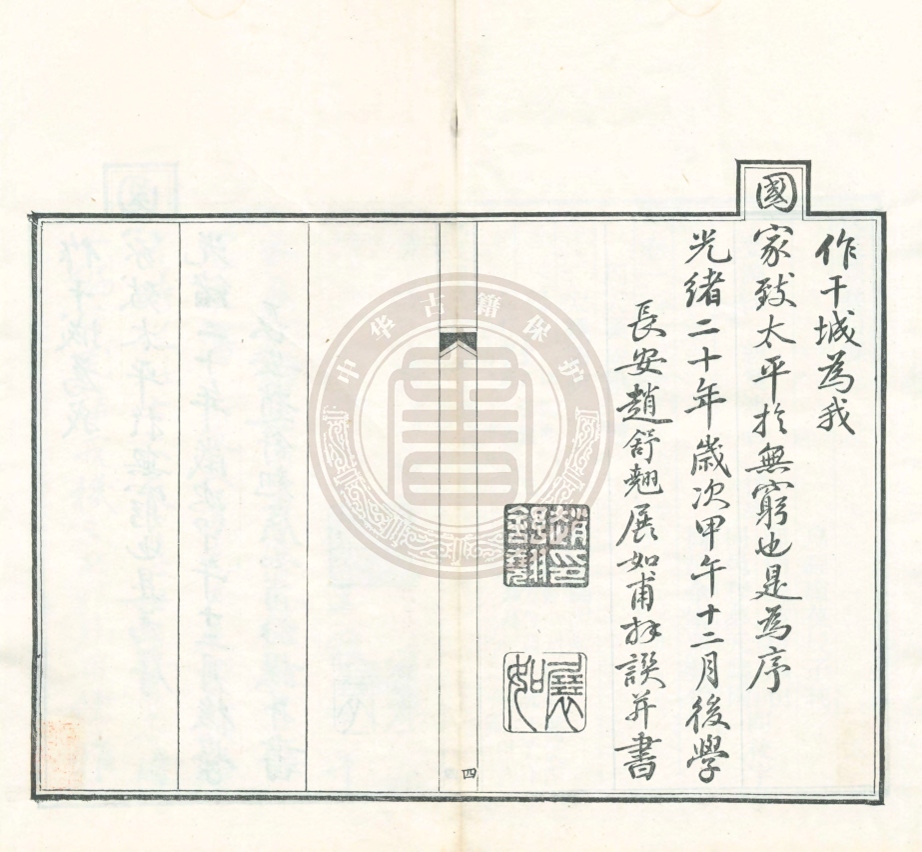 作干城為我
國家致太平於無窮也是為序
光緒二十年歲次甲午十二月後學
長安趙舒翹展如甫拜譔并書
趙舒翹印
展如
四
中华古籍保护